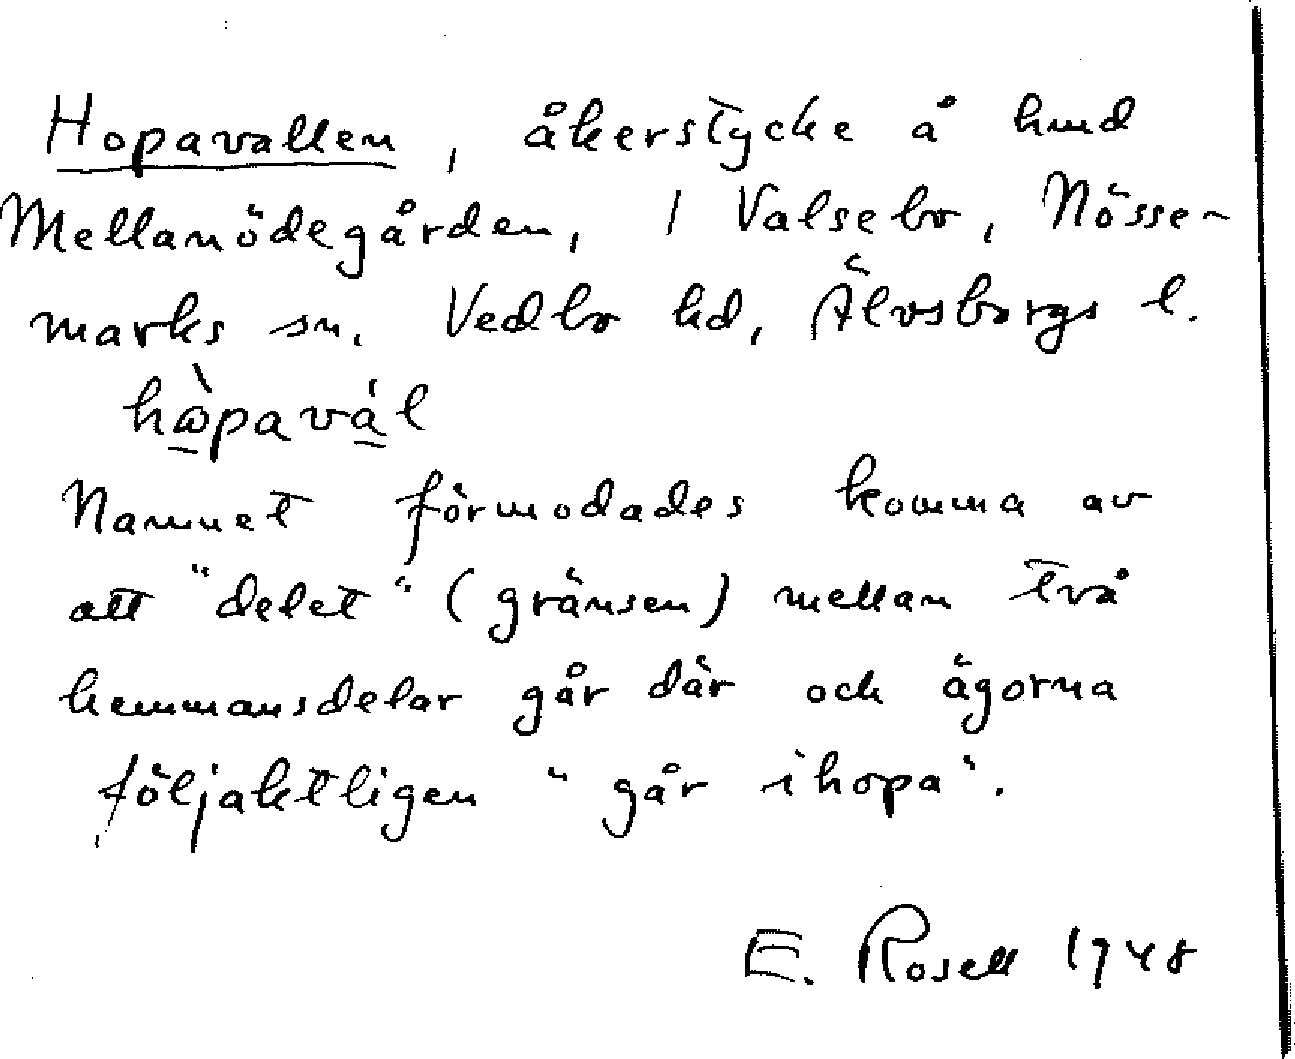 Hopavallen, åkerstycke å hmd
Mellanödegården, 1 Valsebo, Nösse-
marks sn. Vedbo hd, Älvsborgs l.
hɷ̀paväl
Namnet förmodades komma av
att "delet" (gränsen) mellan två
hemmansdelar går där och ägorna
följaktligen "går ihopa".
E. Rosell 1948